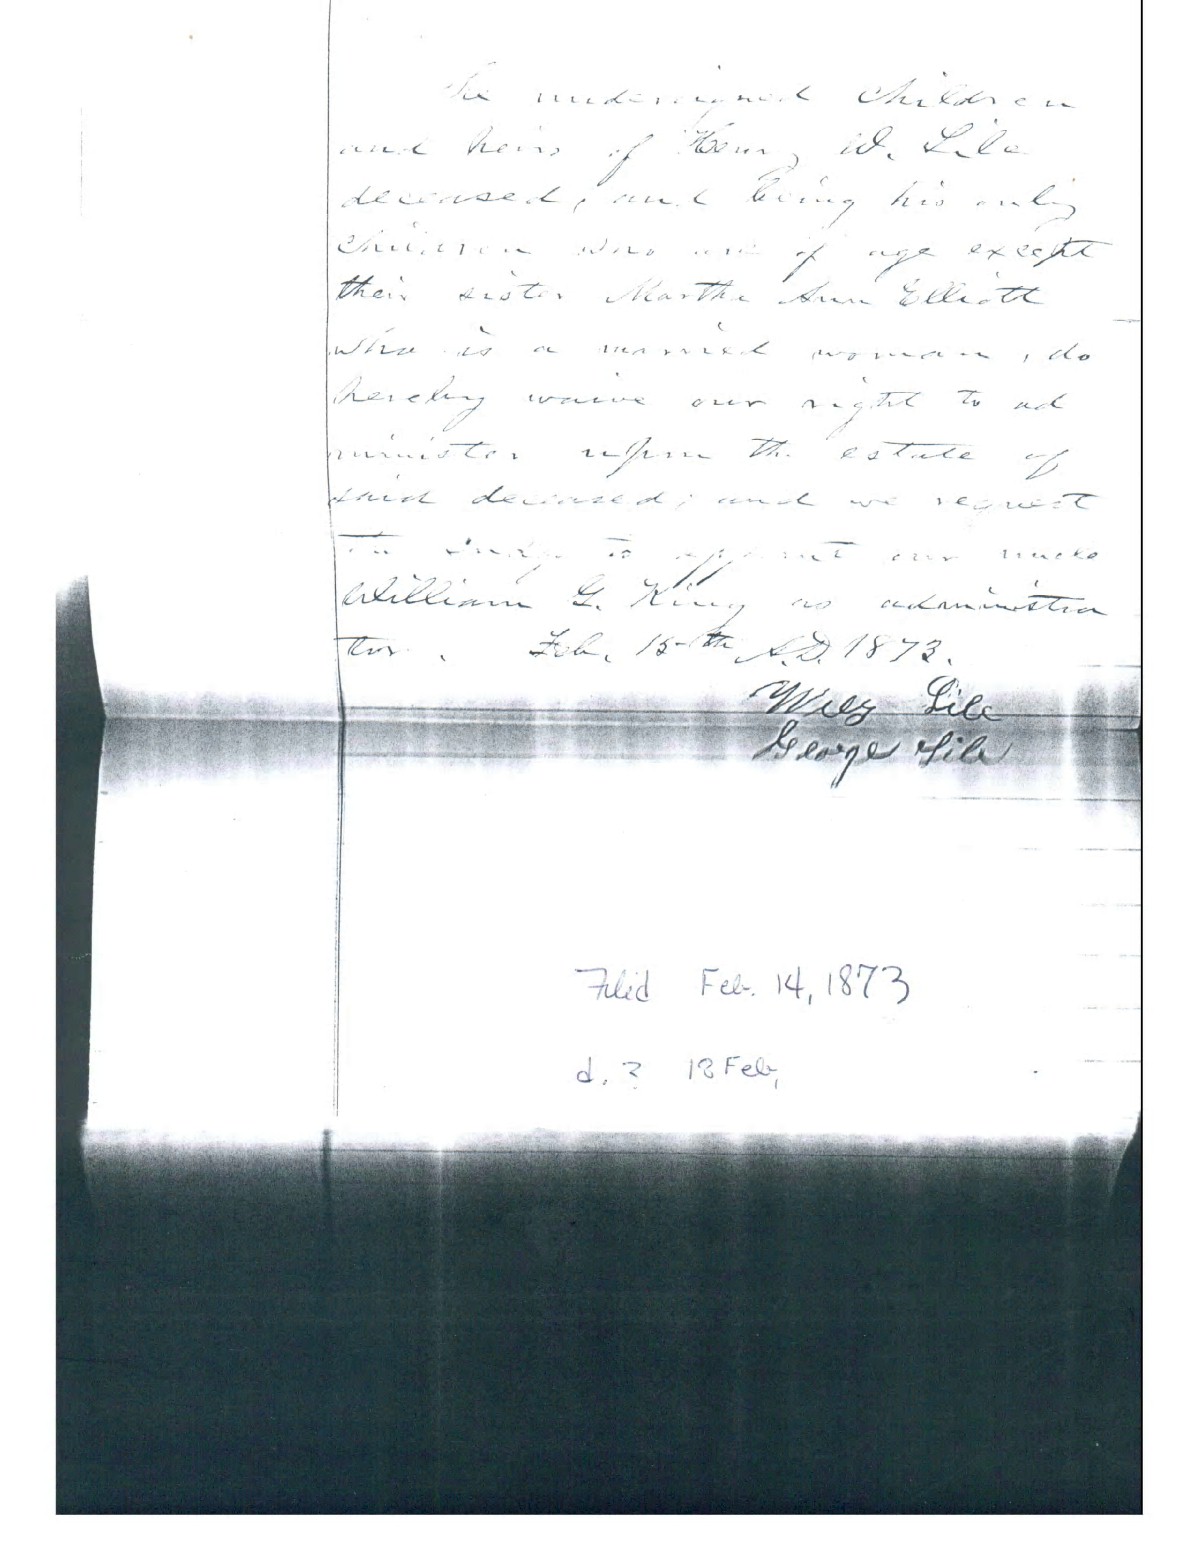 The undersigned children
and heirs of Henry W. Lile
deceased, and being his only
children who are of age except
their sister Martha Ann Elliott
who is a married woman, do
hereby waive our right to ad
minister upon the estate of
said deceased; and we request
the Judge to appoint our uncle
William G. King as administra
tor. Feb. 15th A.D. 1873.
Wiley Lile
George Lile
Filed Feb. 14, 1873
d. ? 12 Feb,